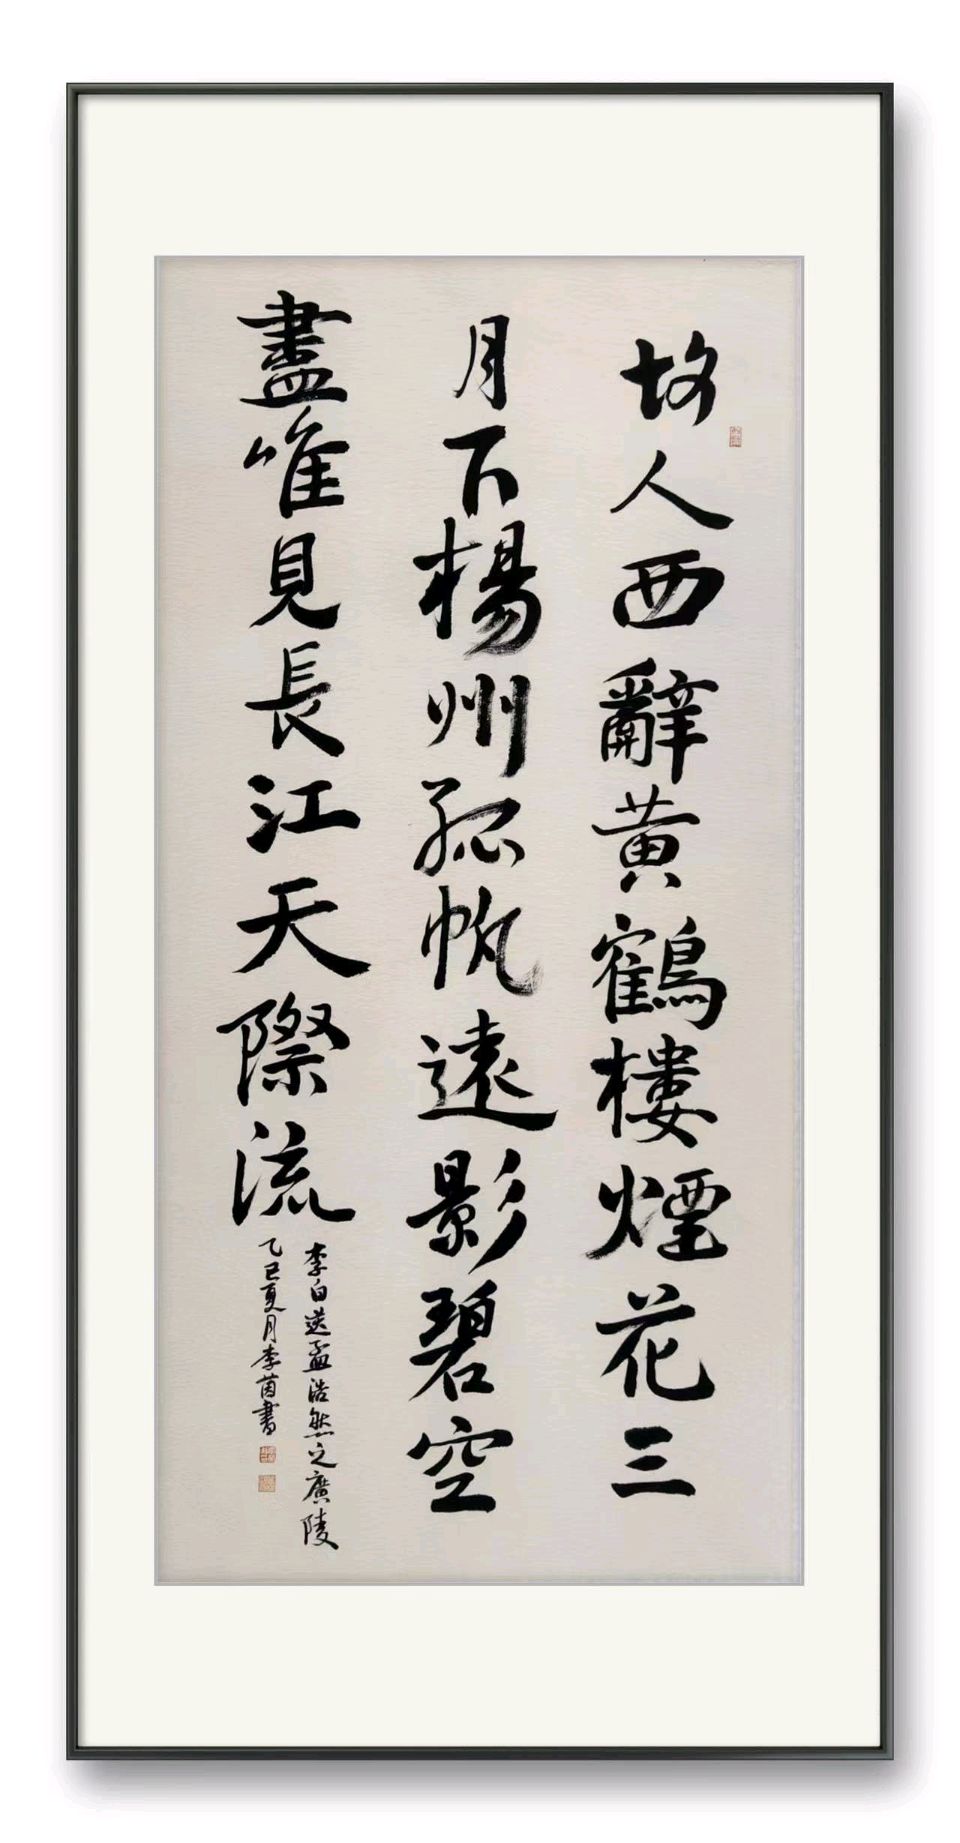 故人西辭黄鶴樓煙花三
月下楊州孤帆遠影碧空
盡唯見長江天際流
李白送孟浩然之廣陵
乙巳夏月李茵書